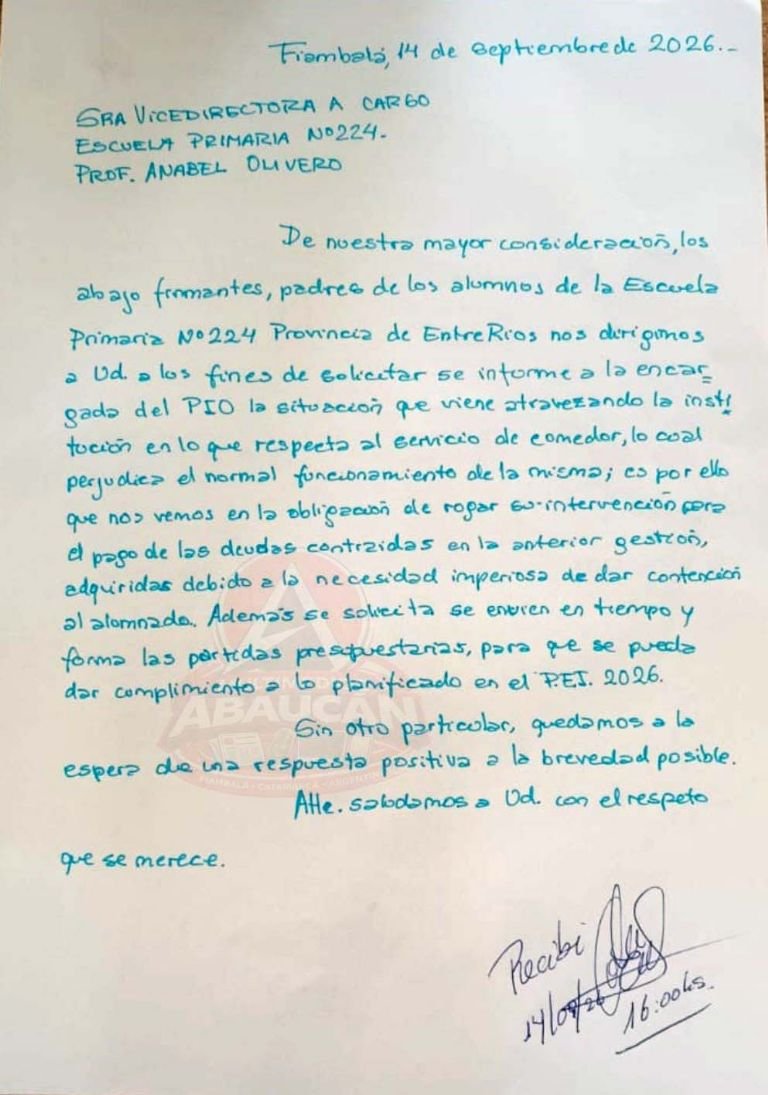 Fiambalá, 14 de septiembre de 2026.-
SRA VICEDIRECTORA A CARGO
ESCUELA PRIMARIA Nº224.
PROF. ANABEL OLIVERO
De nuestra mayor consideración, los
abajo firmantes, padres de los alumnos de la Escuela
Primaria Nº224 Provincia de Entre Rios nos dirigimos
a Ud. a los fines de solicitar se informe a la encar=
gada del PIO la situación que viene atravezando la insti
tución en lo que respecta al servicio de comedor, lo cual
perjudica el normal funcionamiento de la misma; es por ello
que nos vemos en la obligación de rogar su intervención para
el pago de las deudas contraidas en la anterior gestión,
adquiridas debido a la necesidad imperiosa de dar contención
al alumnado. Además se solicita se envien en tiempo y
forma las partidas presupuestarias, para que se pueda
dar cumplimiento a lo planificado en el P.E.I. 2026.
Sin otro particular, quedamos a la
espera de una respuesta positiva a la brevedad posible.
Atte. saludamos a Ud. con el respeto
que se merece.
ABAUCAN
FIAMBALÁ - CATAMARCA - ARGENTINA
Recibi
14/09/26
16:00hs.